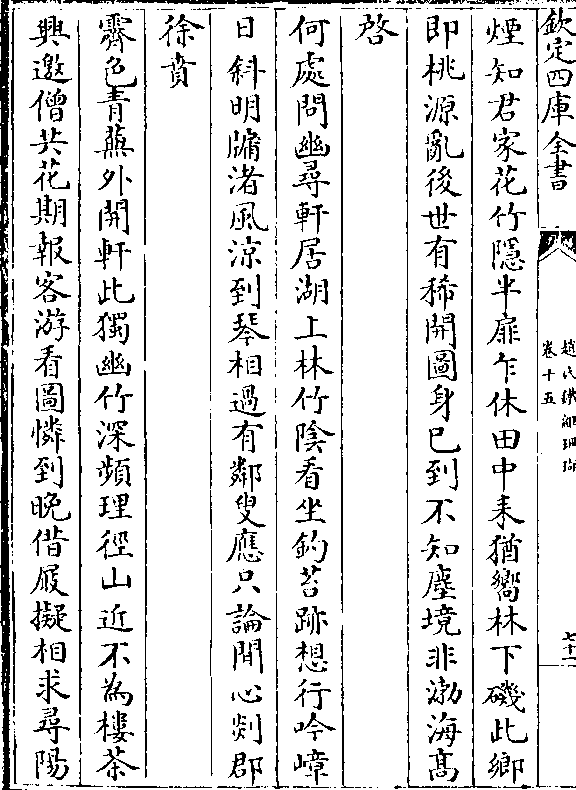 欽定四庫全書
趙氏鐵網珊瑚
卷十五
七十一
煙知君家花竹隱半扉乍休田中耒猶嚮林下磯此鄉
即桃源亂後世有稀開圖身已到不知塵境非渤海髙
啓
何處問幽尋軒居湖上林竹陰看坐釣苔跡想行吟嶂
日斜明牗渚風涼到琴相過有鄰叟應只論閒心剡郡
徐賁
霽色青蕪外開軒此獨幽竹深頻理徑山近不為樓茶
興邀僧共花期報客游看圖憐到晚借屐擬相求尋陽